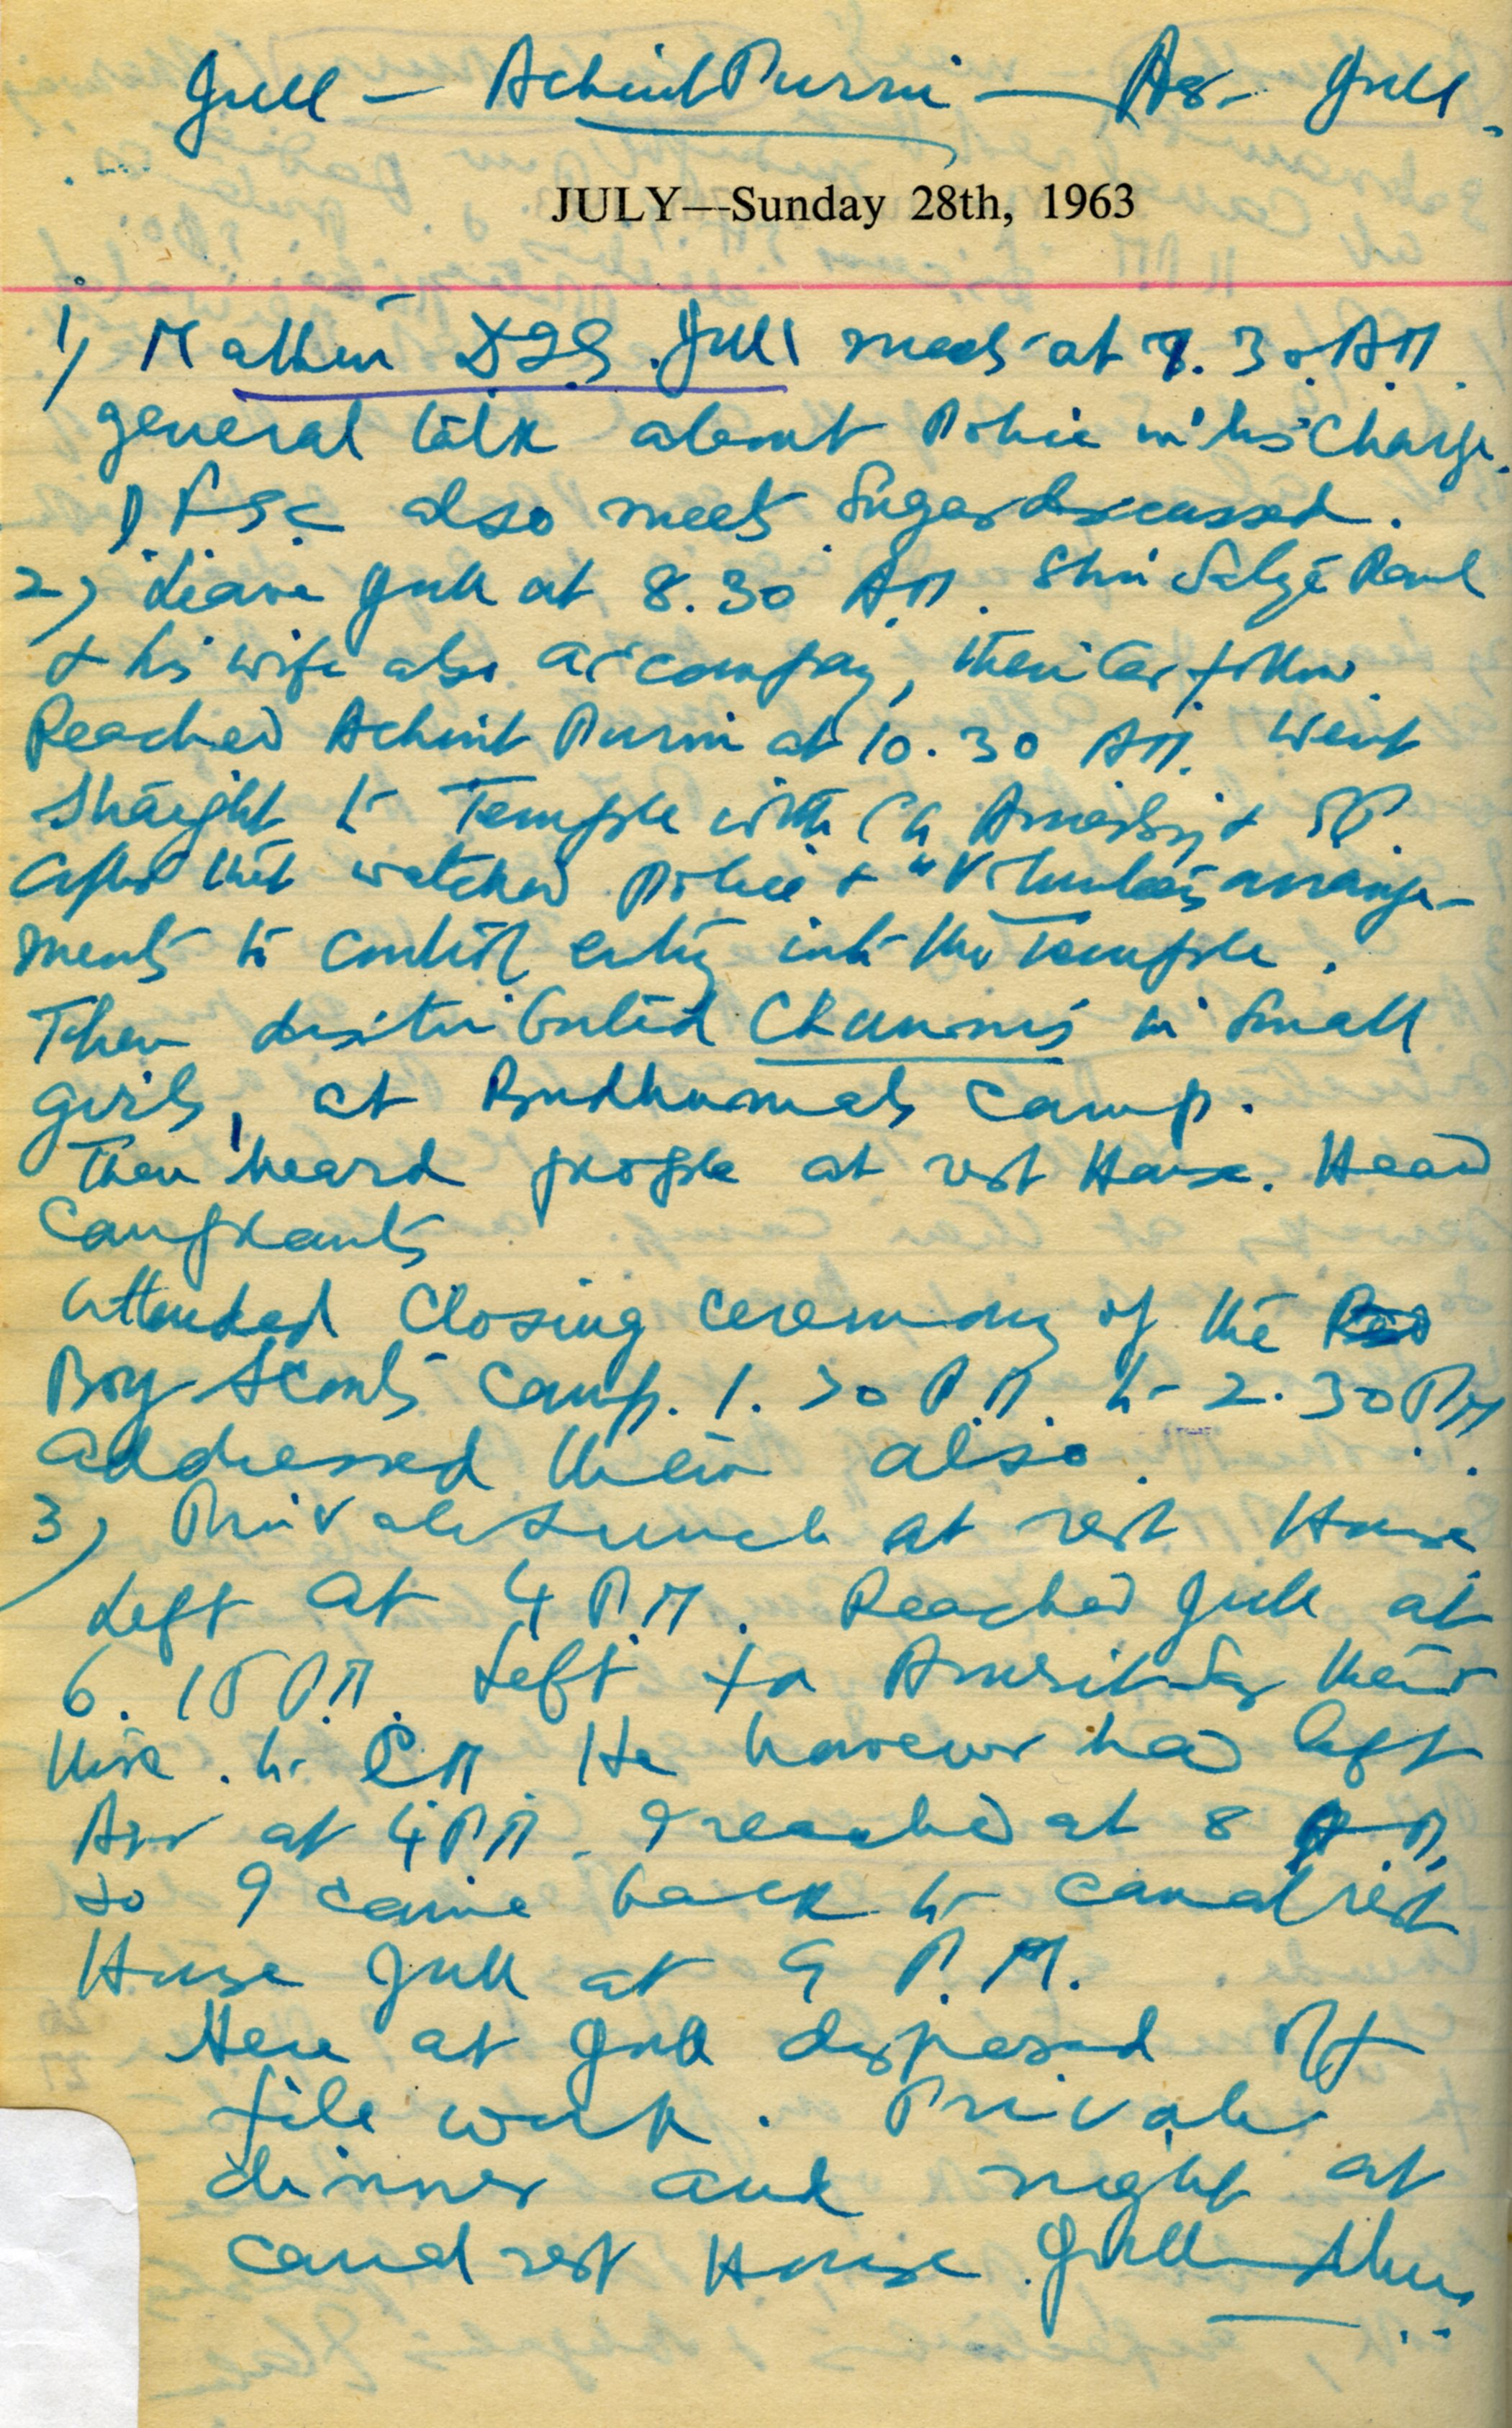 Jull — Achint Purni — Asr Jull.
JULY—Sunday 28th, 1963
1) Mathur D.I.G. Jull meets at 7.30 A.M.
general talk about Police in his Charge.
D.F.S.C. also meets. Sugar discussed.
2) Leave Jull at 8.30 A.M. Shri Satya Paul
& his wife also accompany, their Car follow.
Reached Achint Purni at 10.30 A.M. Went
straight to Temple with Ch Amar Singh & SP.
After that watched Police & Volunteers arrange-
ments to control entry into the Temple.
Then distributed Chunnis in small
girls, at Budhumals Camp.
Then heard people at rest House. Head
Complaints
attended Closing ceremony of the
Boy Scouts Camp. 1.30 P.M. to 2.30 PM
addressed them also.
3) Private Lunch at rest House
Left at 4 P.M. Reached Jull at
6.15 P.M. Left for Amritsar
there to C.M. He however had left
Asr at 4 P.M. I reached at 8 P.M.
so I came back to canal rest
House Jull at 9 P.M.
Here at Jull disposed off
file work. Private
dinner and night at
canal rest House Jull